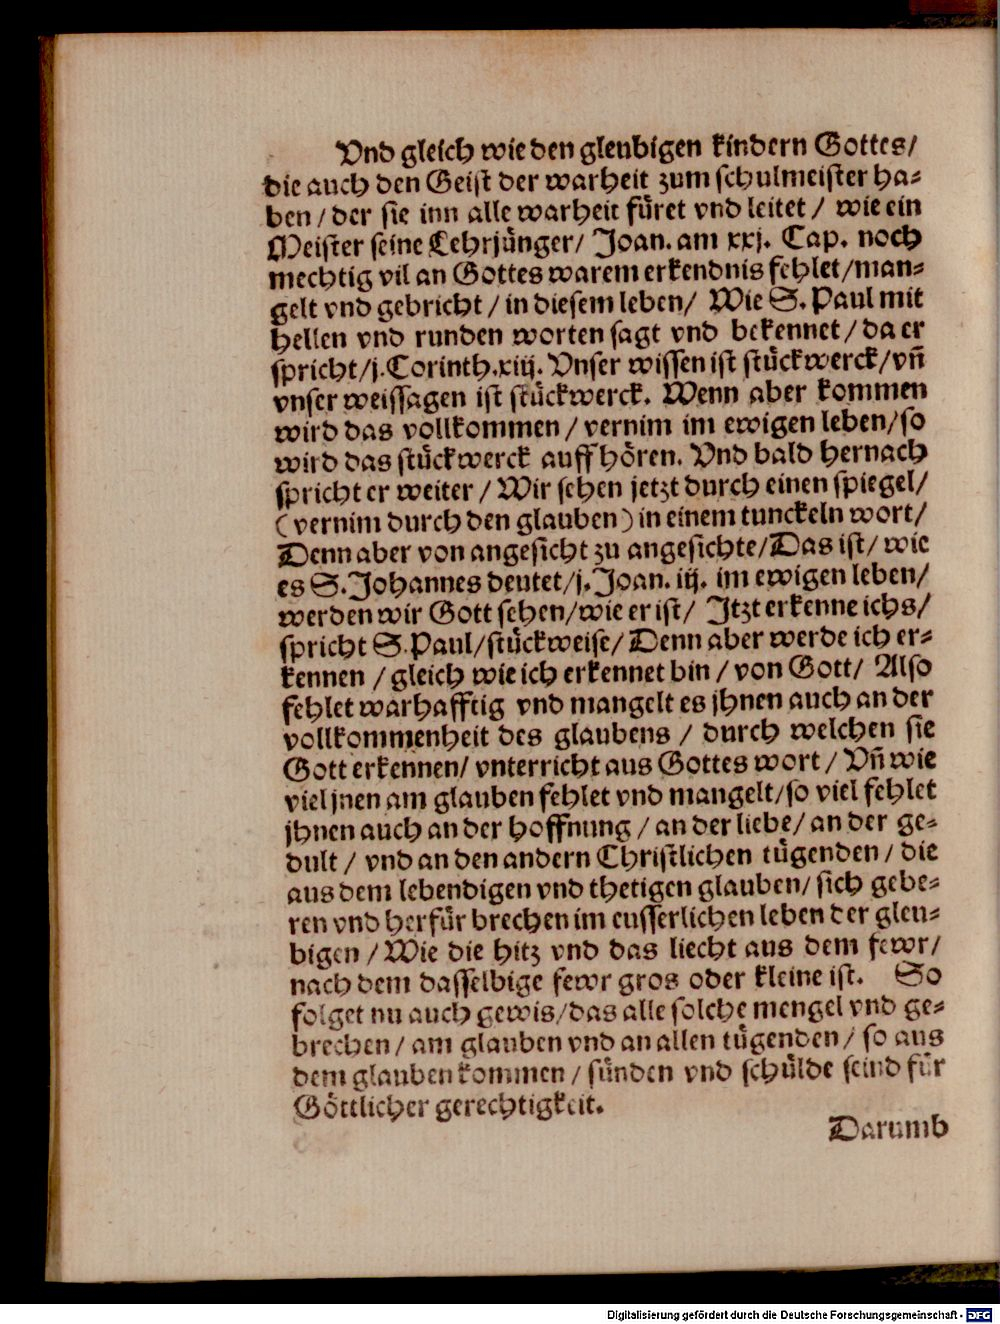 Vnd gleich wie den gleubigen kindern Gottes/
die auch den Geist der warheit zum schulmeister ha⸗
ben / der sie inn alle warheit füret vnd leitet / wie ein
Meister seine Lehrjünger/ Joan. am xxj. Cap. noch
mechtig vil an Gottes warem erkendnis fehlet/man⸗
gelt vnd gebricht / in diesem leben/ Wie S. Paul mit
hellen vnd runden worten sagt vnd bekennet/ da er
spricht/j. Corinth.xiij. Vnser wissen ist stückwerck/vñ
vnser weissagen ist stückwerck. Wenn aber kommen
wird das vollkommen / vernim im ewigen leben/so
wird das stückwerck auff hören. Vnd bald hernach
spricht er weiter / Wir sehen jetzt durch einen spiegel/
(vernim durch den glauben) in einem tunckeln wort/
Denn aber von angesicht zu angesichte/Das ist/ wie
es S. Johannes deutet/j. Joan. iij. im ewigen leben/
werden wir Gott sehen/wie er ist/ Itzt erkenne ichs/
spricht S. Paul/stückweise/ Denn aber werde ich er⸗
kennen / gleich wie ich erkennet bin / von Gott/ Also
fehlet warhafftig vnd mangelt es jhnen auch an der
vollkommenheit des glaubens / durch welchen sie
Gott erkennen/ vnterricht aus Gottes wort / Vñ wie
viel jnen am glauben fehlet vnd mangelt/so viel fehlet
jhnen auch an der hoffnung / an der liebe/ an der ge⸗
dult / vnd an den andern Christlichen tügenden / die
aus dem lebendigen vnd thetigen glauben/ sich gebe⸗
ren vnd herfür brechen im eusserlichen leben der gleu⸗
bigen / Wie die hitz vnd das liecht aus dem fewr/
nach dem dasselbige fewr gros oder kleine ist. So
folget nu auch gewis/das alle solche mengel vnd ge⸗
brechen / am glauben vnd an allen tügenden / so aus
dem glauben kommen / sünden vnd schülde seind für
Göttlicher gerechtigkeit.
Darumb
Digitalisierung gefördert durch die Deutsche Forschungsgemeinschaft - DFG